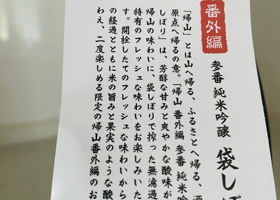 番外編
参番 純米吟醸 袋し
「帰山」とは山へ帰る、ふるさとへ帰る、酒
原点へ帰るの意。「帰山 番外編 参番 純米吟醸
しぼり」は、芳醇な甘みと爽やかな酸味が
帰山の味わいに、袋しぼりで搾った無濾過
持有のフレッシュな味わいをお楽しみいた
す。開栓したてのフレッシュな味わいから
の経過とともに米の旨みと果実のような酸
わえ、二度楽しめる限定の帰山番外編のお